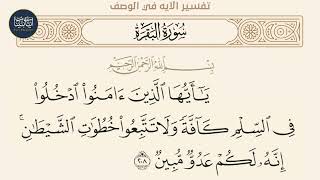 تفسير الآيه في الوصف
سُورَةُ الْبَقَرَةِ
بِسْمِ اللَّهِ الرَّحْمَٰنِ الرَّحِيمِ
يَٰٓأَيُّهَا ٱلَّذِينَ ءَامَنُوا۟ ٱدْخُلُوا۟
فِى ٱلسِّلْمِ كَآفَّةً وَلَا تَتَّبِعُوا۟ خُطُوَٰتِ ٱلشَّيْطَٰنِ ۚ
إِنَّهُۥ لَكُمْ عَدُوٌّ مُّبِينٌ ٢٠٨